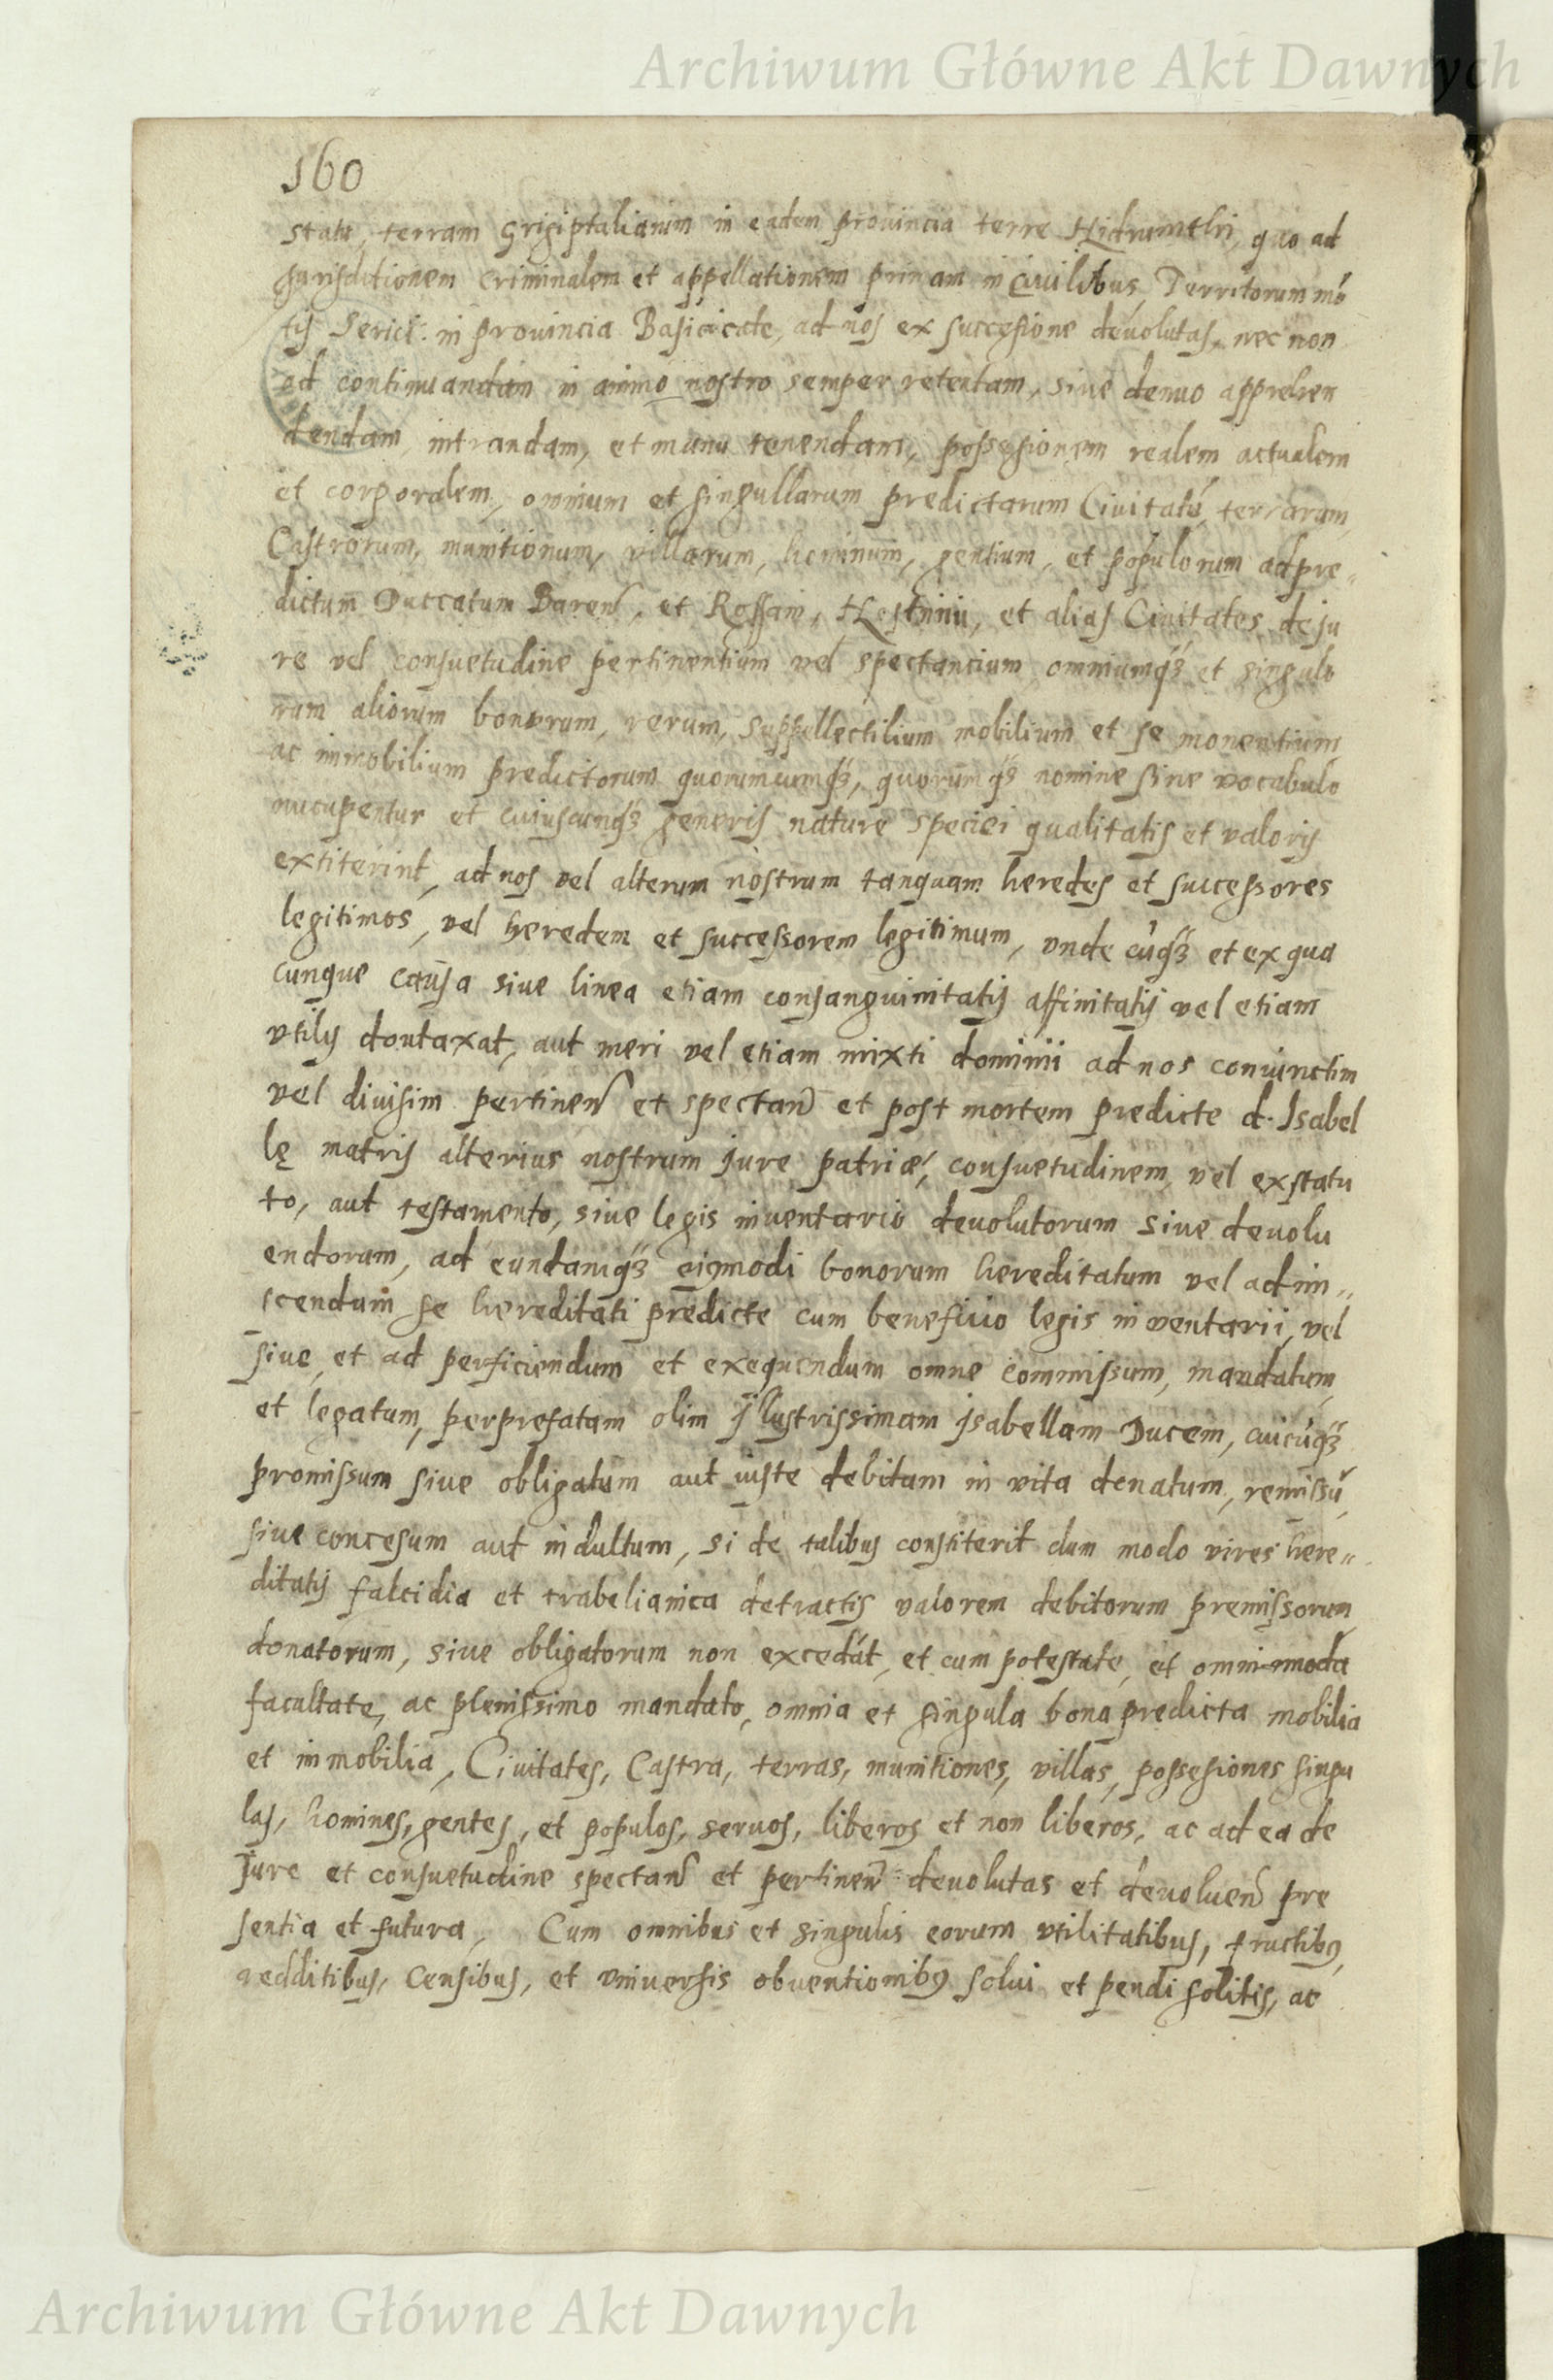 Archiwum Główne Akt Dawnych
160
statu, terram Grigiptalianim in eadem provincia terre Hidrunthi, quo ad
Jurisditionem criminalem et appellationem primam in Civilibus, Territorium mō
tis Serici: in provincia Basiricate, ad nos ex successione devolutas, nec non
ad continuandam in animo nostro semper retentam, sive denuo appreħen
dendam, intrandam, et manu tenendam, possesionem realem actualem
et corporalem, omnium et singullarum predictarum Civitatū, terrarum,
Castrorum, munitionum, villarum, hominum, gentium, et populorum ad pre„
dictum Duccatum Baren̄, et Rossani, Hostinii, et alias Civitates, de ju
re vel consuetudine pertinentium vel spectancium omniumqʒ et singulo
rum aliorum bonorum, rerum, suppellectilium mobilium et se monentium
ac immobilium predictorum quorumcumqʒ, quorumqʒ nomine sive vocabulo
nucupentur et cuiuscunqʒ generis nature speciei qualitatis et valoris
extiterint, ad nos vel alterum nostrum tanquam heredes et successores
legitimos, vel heredem et successorem legitimum, unde cūqʒ et ex qua
cunque causa sive linea etiam consanguinitatis affinitatis vel etiam
utilis dontaxat, aut meri vel etiam mixti dominii ad nos coniunctim
vel divisim pertinen̄ et spectan̄ et post mortem predicte d. Isabel
lę matris alterius nostrum jure patriæ, consuetudinem, vel ex statu
to, aut testamento, sive legis inventario devolutorum sive devolu
endorum, ad eundamqʒ eiꝰmodi bonorum hereditatum vel ad im„
scendum se hereditati predicte cum beneficio legis inventarii, vel
sive, et ad perficiendum et exequendum omne commissum, mandatum,
et legatum, per prefatam olim jllustrissimam jsabellam Ducem, cuicūqʒ
promissum sive obligatum aut iuste debitam in vita denatum, remissū,
sive concesum aut indultum, si de talibus constiterit dum modo vires here„
ditatis falcidia et trabelianica detractis valorem debitorum premissorum
donatorum, sive obligatorum non excedāt, et cum potestate, et omnimoda
facultate, ac plenissimo mandato, omnia et singula bona predicta mobilia
et immobilia, Civitates, Castra, terras, munitiones, villas, possesiones singu
las, homines, gentes, et populos, servos, liberos et non liberos, ac ad ea de
Jure et consuetudine spectan̄ et pertinen̄ devolutas et devoluen̄ pre
sentia et futura, Cum omnibus et singulis eorum utilitatibus, fructibꝰ,
redditibus, censibus, et universis obventionibꝰ solui et pendi solitis, ac
Archiwum Główne Akt Dawnych